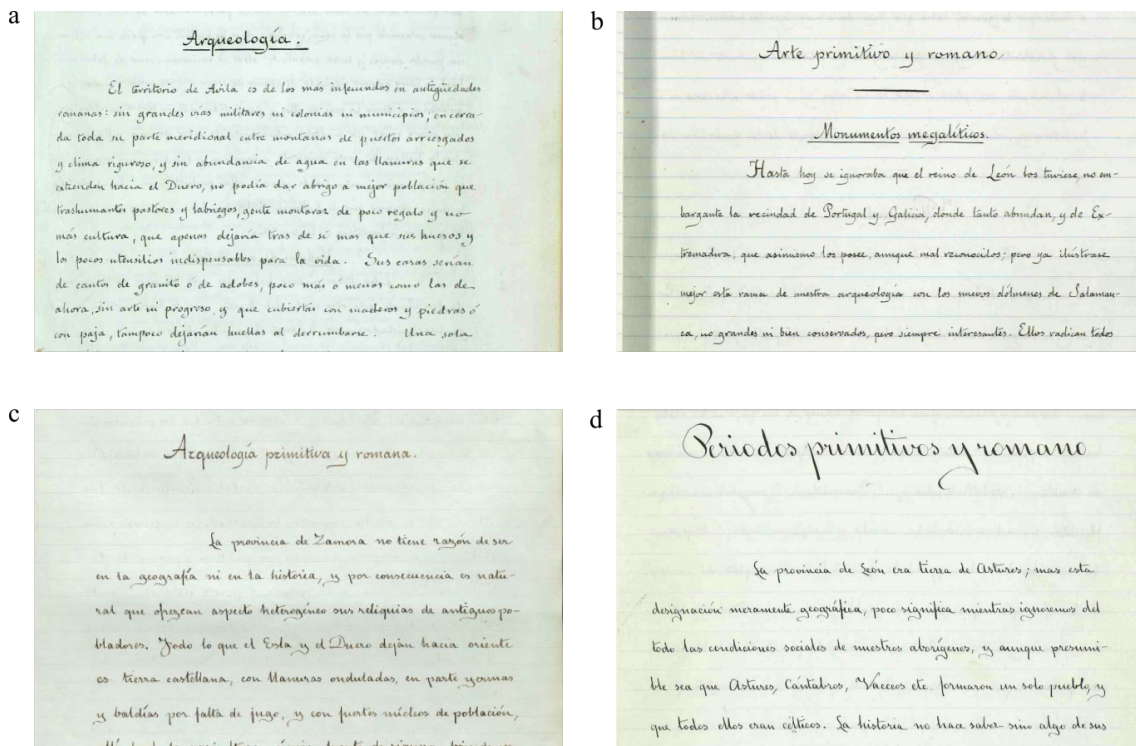 a
Arqueología.
El territorio de Avila es de los más infecundos en antigüedades
romanas: sin grandes vías militares ni colonias ni municipios; encerra-
da toda su parte meridional entre montañas de puertos arriesgados
y clima riguroso, y sin abundancia de agua en las llanuras que se
extienden hacia el Duero, no podía dar abrigo á mejor población que
trashumantes pastores y labriegos, gente montaraz de poco regalo y no
más cultura, que apenas dejaría tras de sí mas que sus huesos y
los pocos utensilios indispensables para la vida. Sus casas serían
de cantos de granito ó de adobes, poco más ó menos como las de
ahora, sin arte ni progreso, y que cubiertas con maderos y piedras ó
con paja, tampoco dejarían huellas al derrumbarse. Una sola
b
Arte primitivo y romano.
Monumentos megalíticos.
Hasta hoy se ignoraba que el reino de León los tuviese, no em-
bargante la vecindad de Portugal y Galicia, donde tanto abundan, y de Ex-
tremadura, que asimismo los posee, aunque mal reconocidos; pero ya ilústrase
mejor esta rama de nuestra arqueología con los nuevos dólmenes de Salaman-
ca, no grandes ni bien conservados, pero siempre interesantes. Ellos radican todos
c
Arqueología primitiva y romana.
La provincia de Zamora no tiene razón de ser
en la geografía ni en la historia, y por consecuencia es natu-
ral que ofrezcan aspecto heterogéneo sus reliquias de antiguos po-
bladores. Todo lo que el Esla y el Duero dejan hacia oriente
es tierra castellana, con llanuras onduladas, en parte yermas
y baldías por falta de jugo, y con fuertes núcleos de población,
d
Periodos primitivos y romano
La provincia de León era tierra de Astures; mas esta
designación meramente geográfica, poco significa mientras ignoremos del
todo las condiciones sociales de nuestros aborígenes, y aunque presumi-
ble sea que Astures, Cántabros, Vacceos etc. formaron un solo pueblo, y
que todos ellos eran célticos. La historia no hace saber sino algo de sus